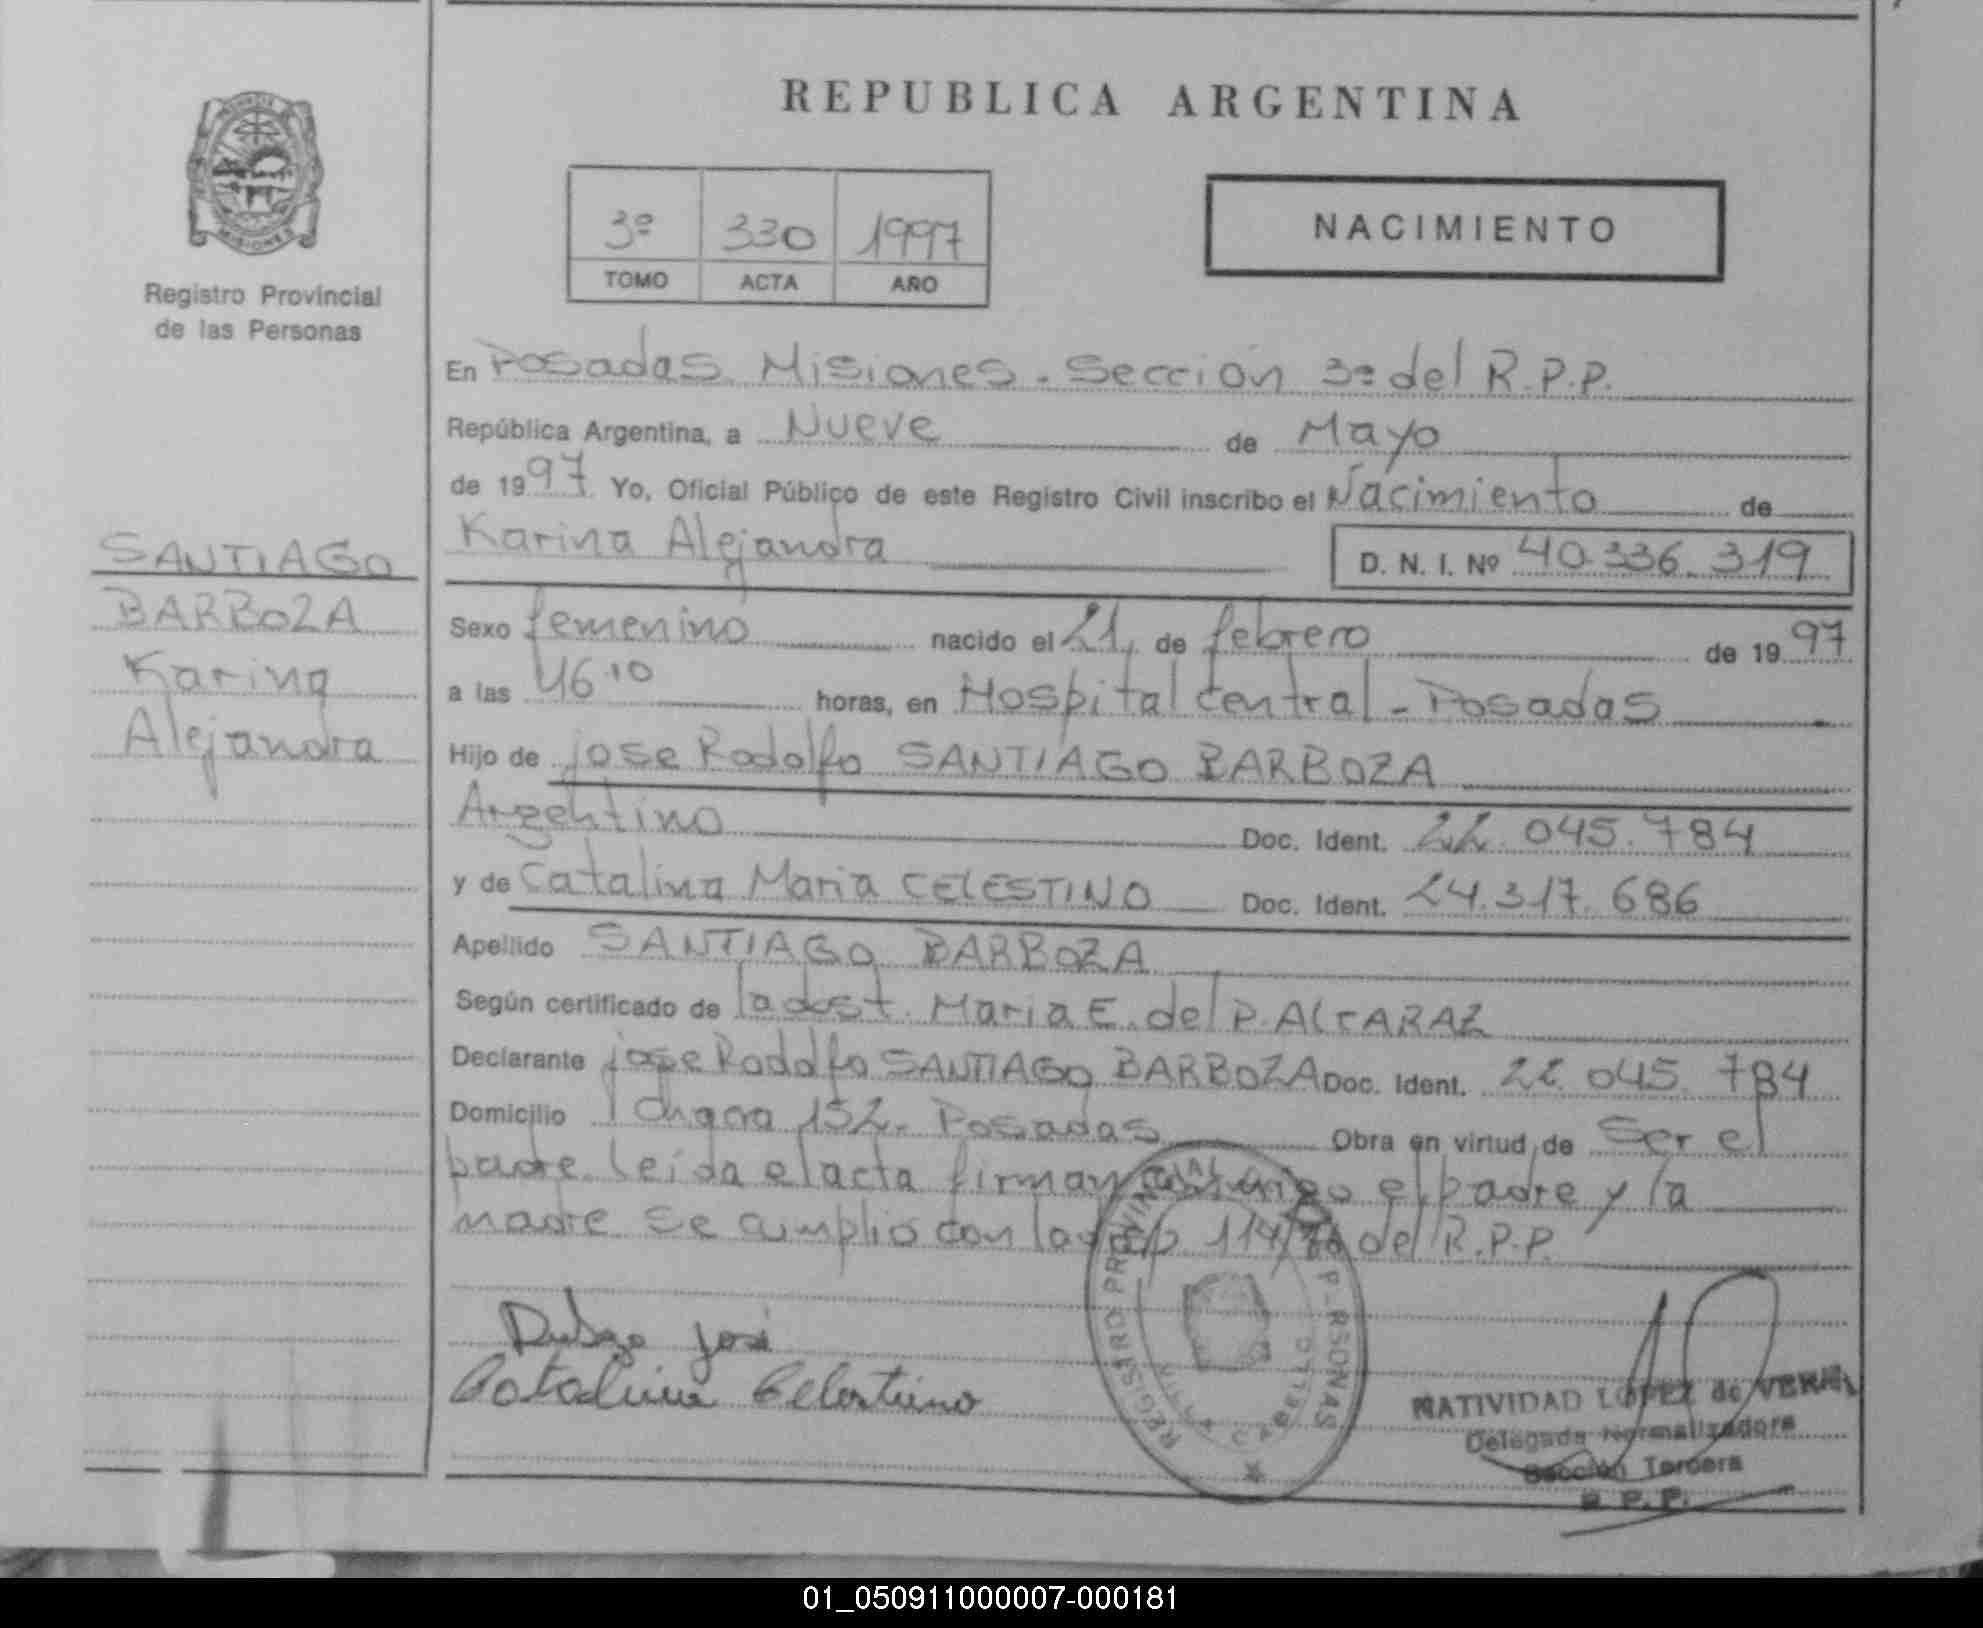 REPUBLICA ARGENTINA
3º 330 1997
TOMO ACTA AÑO
NACIMIENTO
MISIONES
Registro Provincial
de las Personas
SANTIAGO
BARBOZA
Karina
Alejandra
En Posadas Misiones. Sección 3ª del R.P.P.
República Argentina, a Nueve de Mayo
de 1997 Yo, Oficial Público de este Registro Civil inscribo el Nacimiento de
Karina Alejandra D. N. I. Nº 40.336.319
Sexo femenino nacido el 21, de febrero de 1997
a las horas, en Hospital Central - Posadas
Hijo de jose Rodolfo SANTIAGO BARBOZA
Argentino Doc. Ident. 22.045.784
y de Catalina Maria CELESTINO Doc. Ident. 24.317.686
Apellido SANTIAGO BARBOZA
Según certificado de la obst. Maria E. del P. ALCARAZ
Declarante jose Rodolfo SANTIAGO BARBOZA Doc. Ident. 22.045.784
Domicilio Chacra 152. Posadas Obra en virtud de Ser el
padre. leida el acta firman conmigo el padre y la
madre se cumplio con la 114/ del R.P.P.
José
Catalina Celestino
REGISTRO PROVINCIAL PERSONAS
NATIVIDAD LOPEZ de
Delegada Normalizadora
Sección Tercera
R.P.P.
01_050911000007-000181